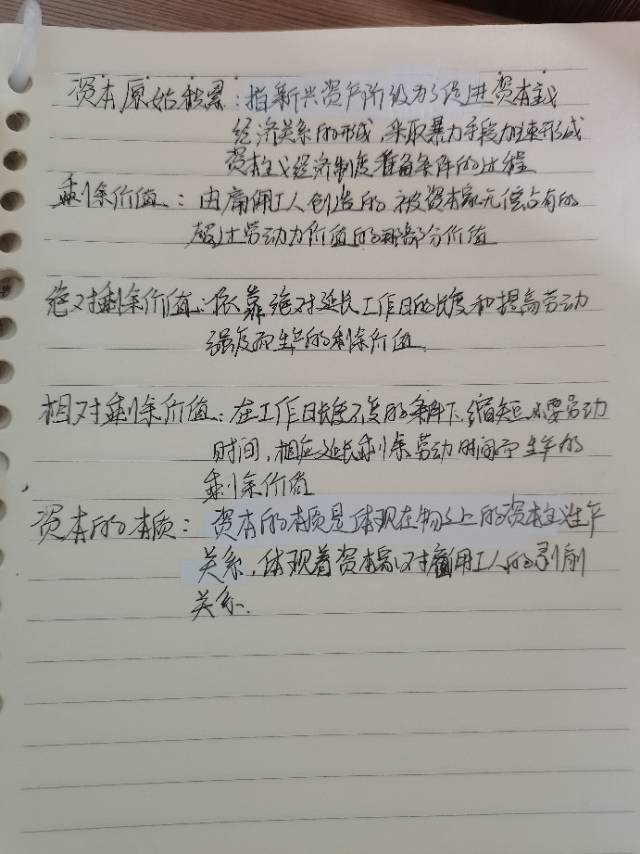 资本原始积累：指新兴资产阶级为了促进资本主义
经济关系的形成，采取暴力手段加速形成
资本主义经济制度准备条件的过程
剩余价值：由雇佣工人创造的被资本家无偿占有的
超过劳动力价值的那部分价值
绝对剩余价值：依靠绝对延长工作日的长度和提高劳动
强度而生产的剩余价值
相对剩余价值：在工作日长度不变的条件下，缩短必要劳动
时间，相应延长剩余劳动时间而生产的
剩余价值
资本的本质：资本的本质是体现在物之上的资本主义生产
关系，体现着资本家对雇佣工人的剥削
关系.